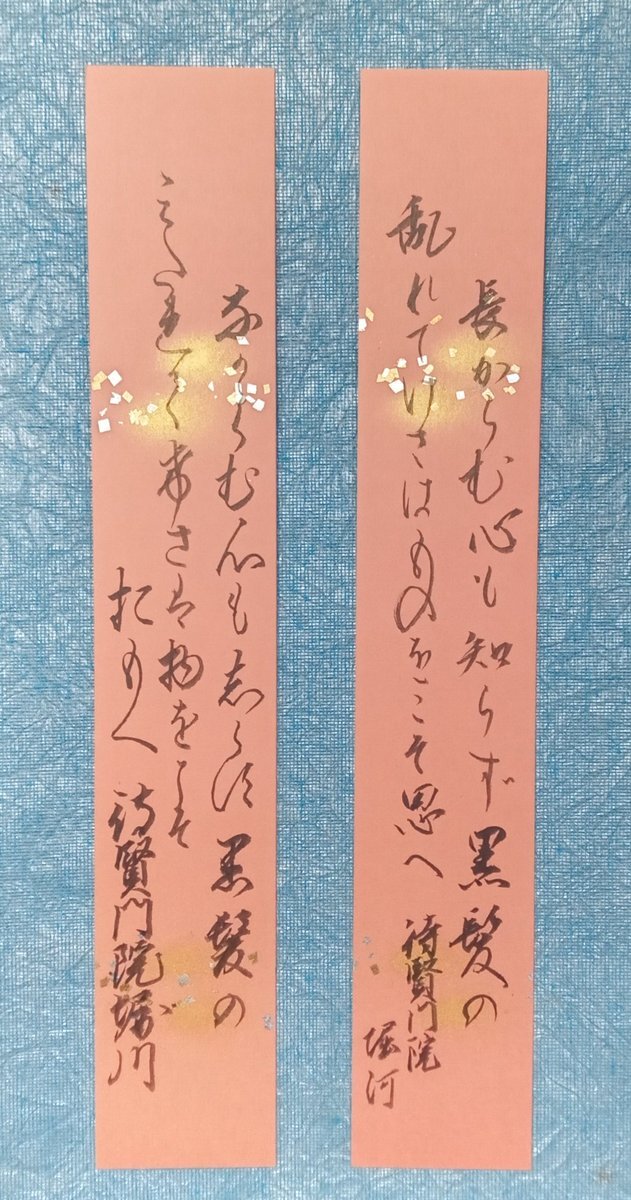 長からむ心も知らず黒髪の
乱れてけさはものをこそ思へ
待賢門院
堀河
長からむ心もしらす黒髪の
みたれてけさは物をこそ
おもへ
待賢門院堀川